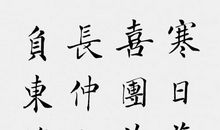 寒日
喜團
長仲
負東